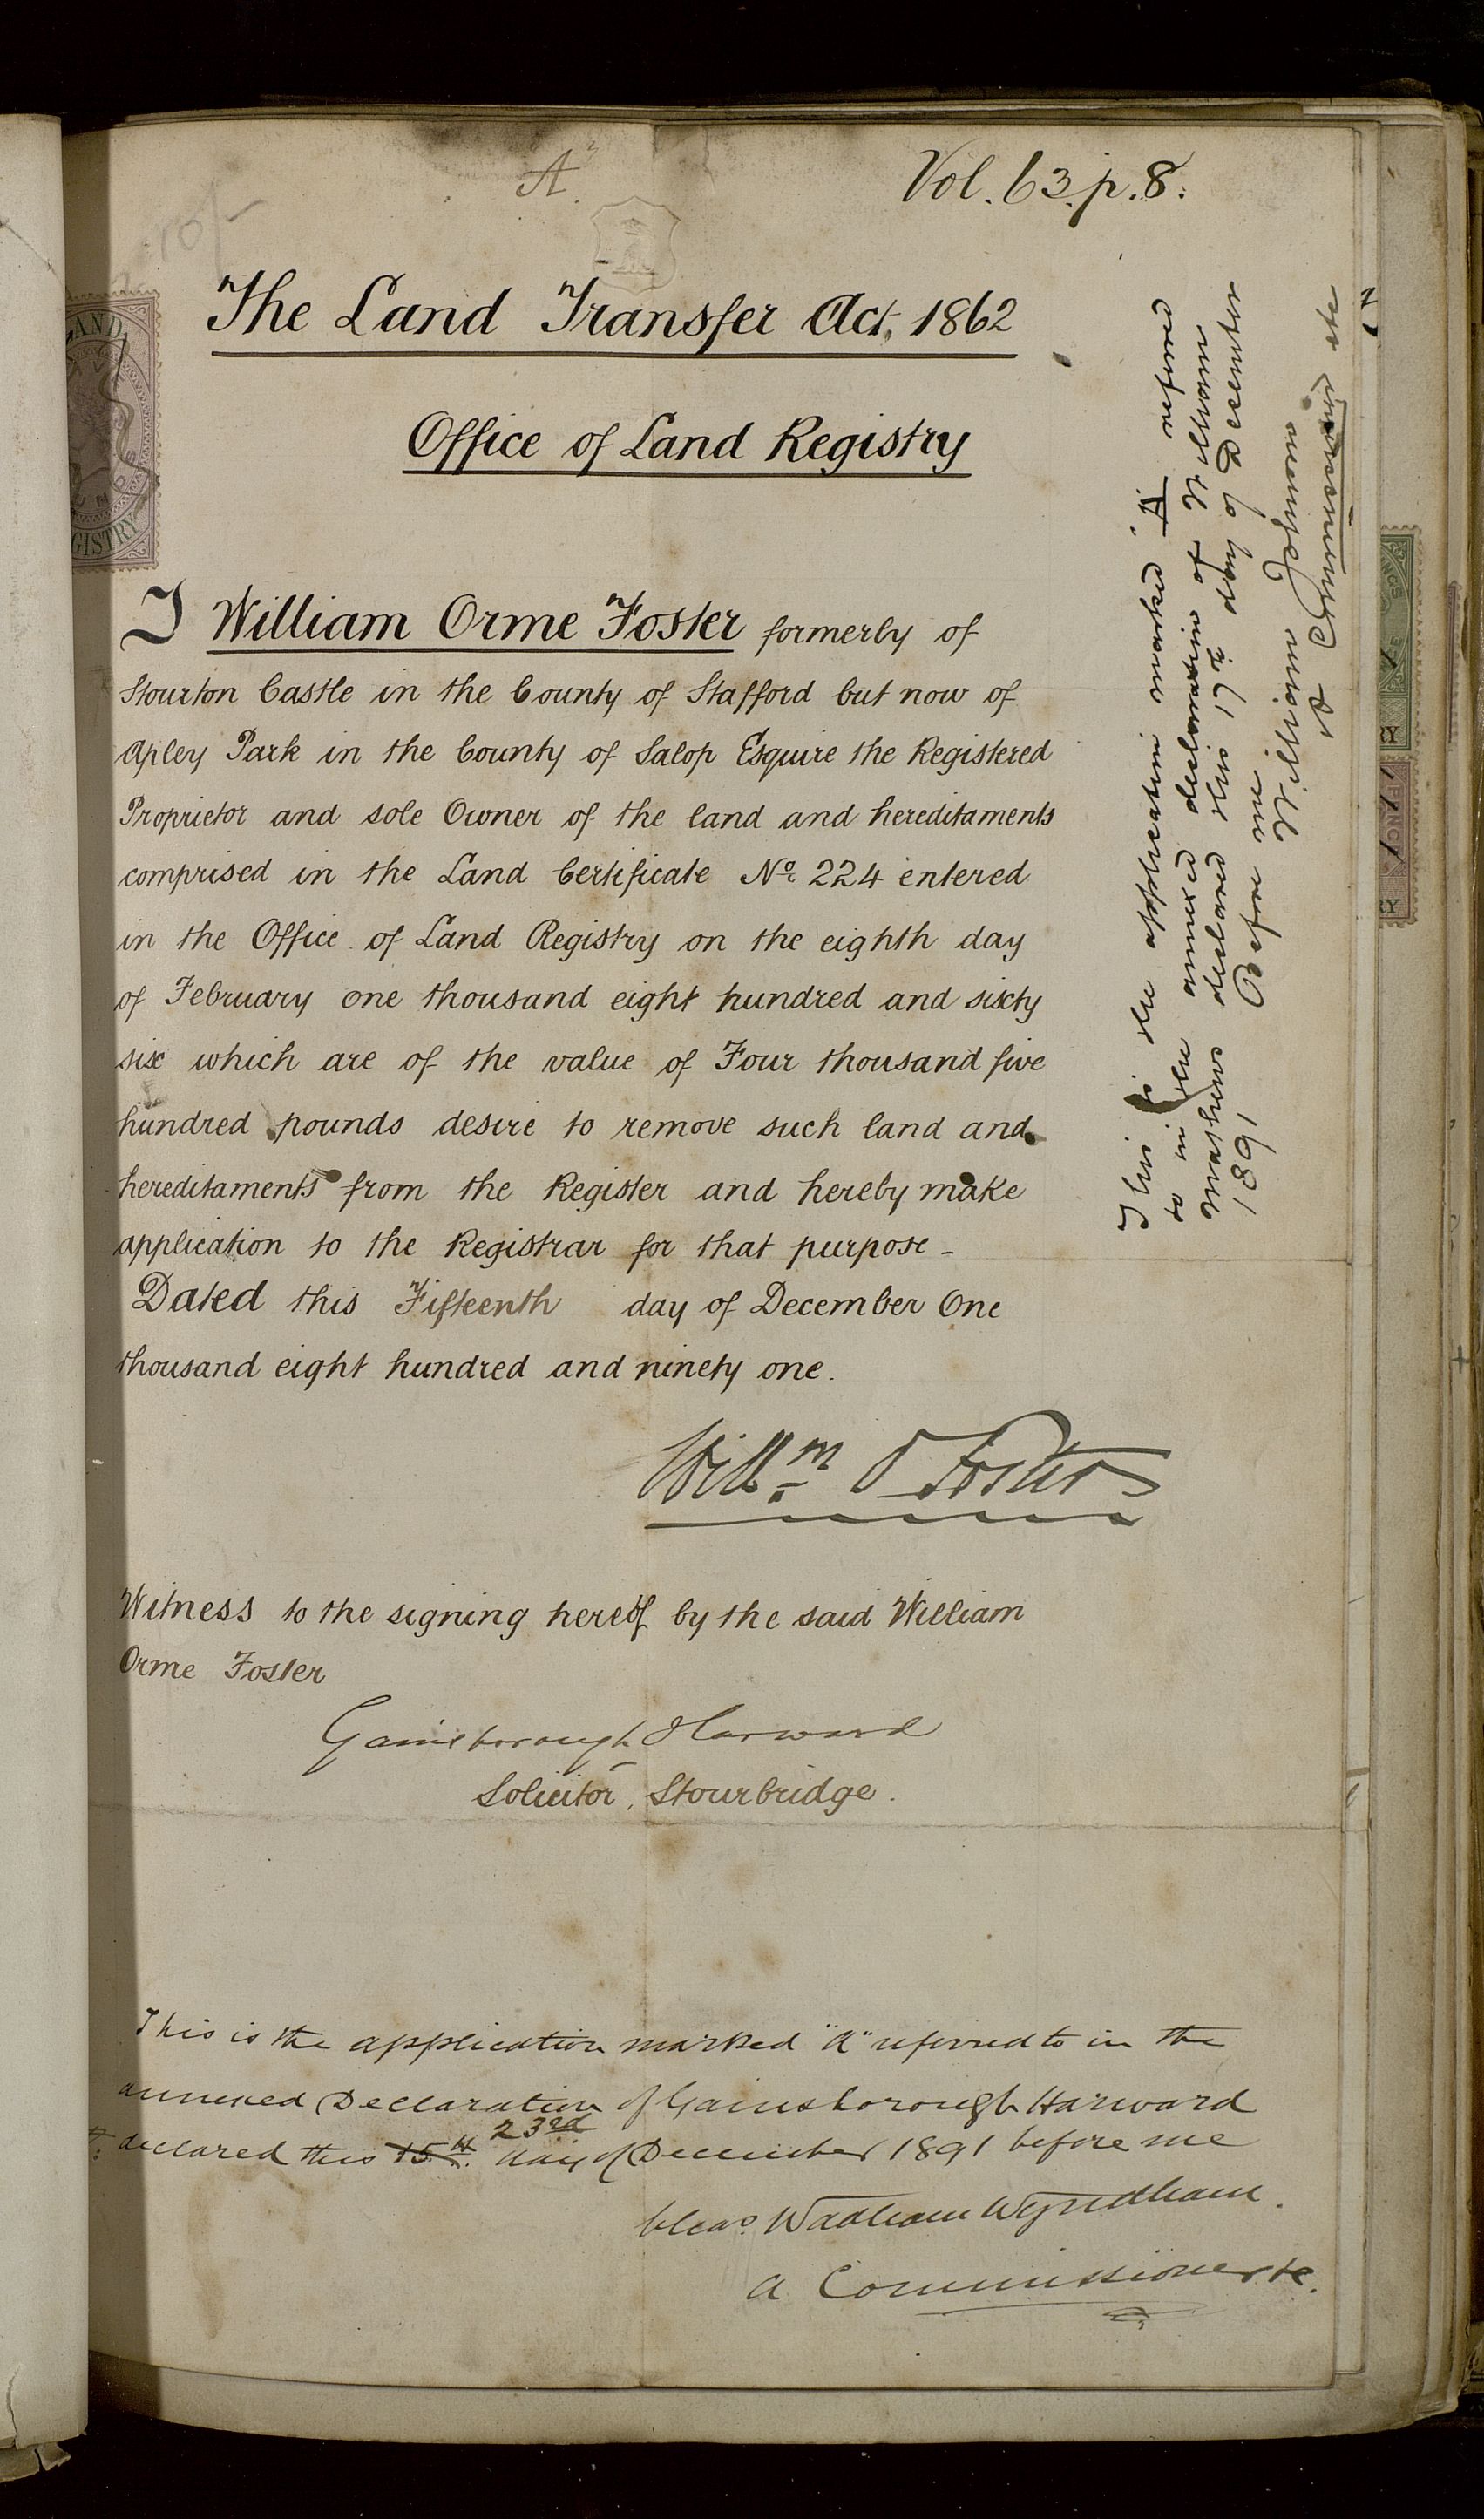 "A"
Vol. 63. p. 8.
10/-
The Land Transfer Act, 1862
Office of Land Registry
I William Orme Foster formerly of
Stourton Castle in the County of Stafford but now of
Apley Park in the County of Salop Esquire the Registered
Proprietor and sole Owner of the land and hereditaments
comprised in the Land Certificate No. 224 entered
in the Office of Land Registry on the eighth day
of February one thousand eight hundred and sixty
six which are of the value of Four thousand five
hundred pounds desire to remove such land and
hereditaments from the Register and hereby make
application to the Registrar for that purpose -
Dated this Fifteenth day of December One
thousand eight hundred and ninety one.
Willm O Foster
Witness to the signing hereof by the said William
Orme Foster
Gainsborough Harward
Solicitor, Stourbridge.
This is the application marked "A" referred to in the
annexed Declaration of Gainsborough Harward
declared this 15th 23rd day of December 1891 before me
Chas. Wadham Wyndham.
A Commissioner &c.
This is the application marked "A" referred
to in the annexed declaration of William
Mathews declared this 17th day of December
1891 Before me
William
A Commissioner &c
LAND
GISTRY